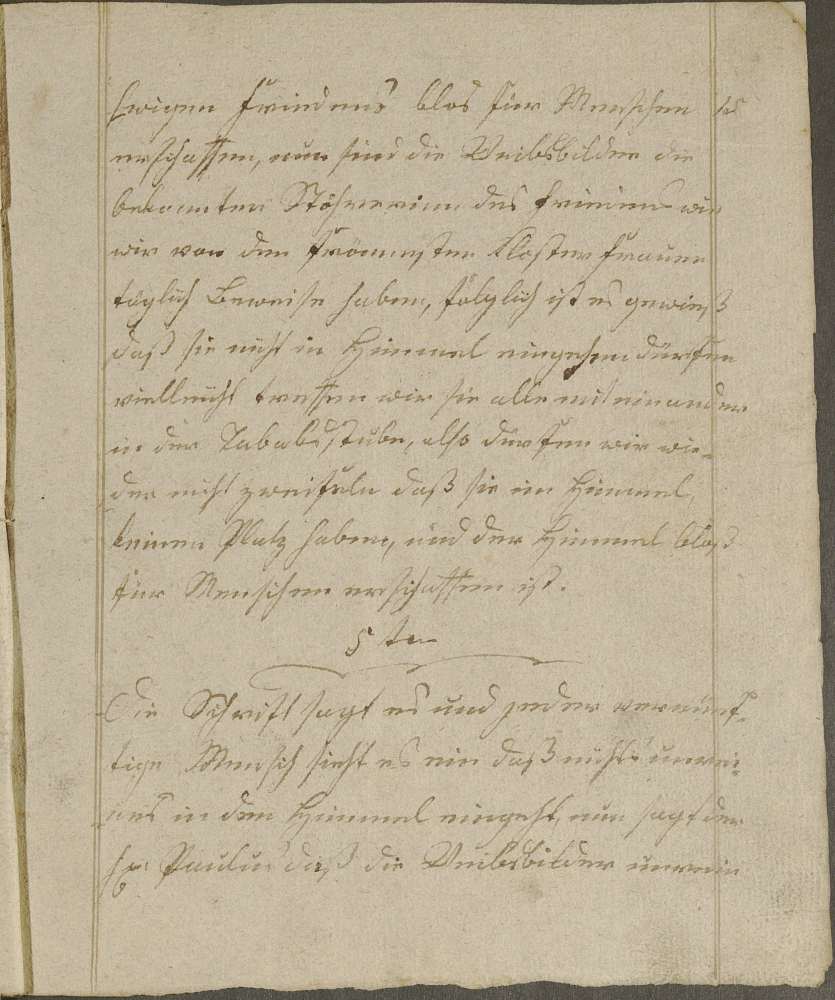 Ewigen Friedens blos für Menschen
erschaffen, nun sind die Weibsbilder die
bekannten Stöhrerinn des Friedens wie
wir von den frömmsten Kloster Frauen
täglich Beweise haben, folglich ist es gewieß
daß sie nicht in Himmel eingehen dürfen
vielleicht treffen wir sie alle mit einander
in der Tabakstube, also dürfen wir wie-
der nicht zweifeln daß sie im Himmel
keinen Platz haben, und der Himmel bloß
für Menschen erschaffen ist.
5 te
Die Schrift sagt es und jeder vernünf-
tige Mensch sieht es ein daß nichts unrei-
nes in den Himmel eingeht, nun sagt der
Hl: Paulus daß die Weibsbilder unrein